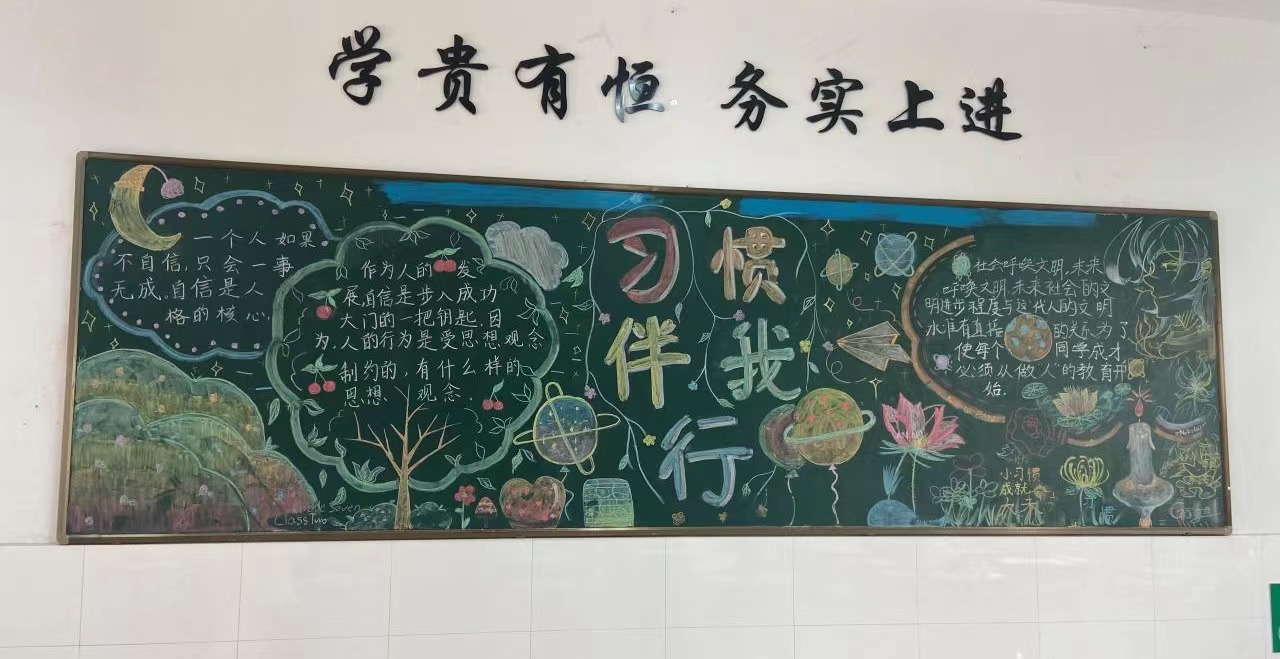 学贵有恒 务实上进
一个人如果
不自信,只会一事
无成。自信是人
格的核心.
作为人的 发
展自信是步入成功
大门的一把钥匙.因
为.人的行为是受思想观念
制约的,有什么样的
思想、 观念.
习惯
伴我
行
社会呼唤文明,未来
呼唤文明.未来社会的文
明进步程度与这代人的文明
水 有直接 的关系.为了
使每个 同学成才
"必须从做人"的教育开
始.
小习惯
成就
Seven
Class Two